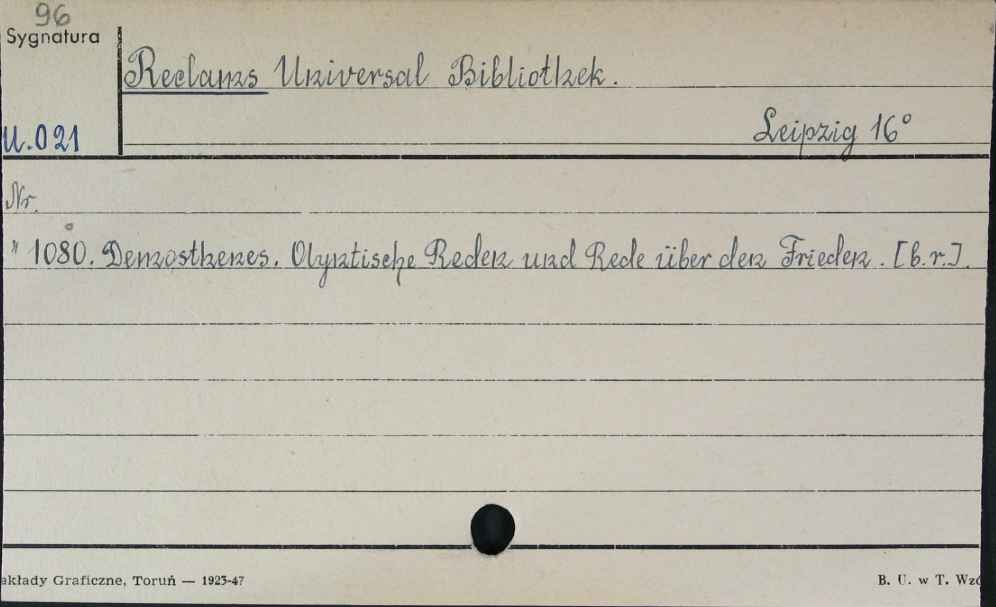 96
Sygnatura
Reclams Universal Bibliothek.
U.021
Leipzig 16°
Nr.
" 1080. Demosthenes. Olyntische Reden und Rede über den Frieden. [b.r.].
akłady Graficzne, Toruń — 1923-47
B. U. w T. Wzó